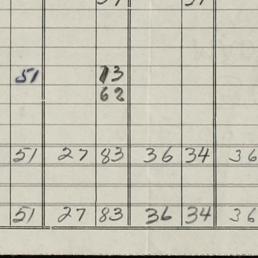 51 13
62
51 27 83 36 34 36
51 27 83 36 34 36